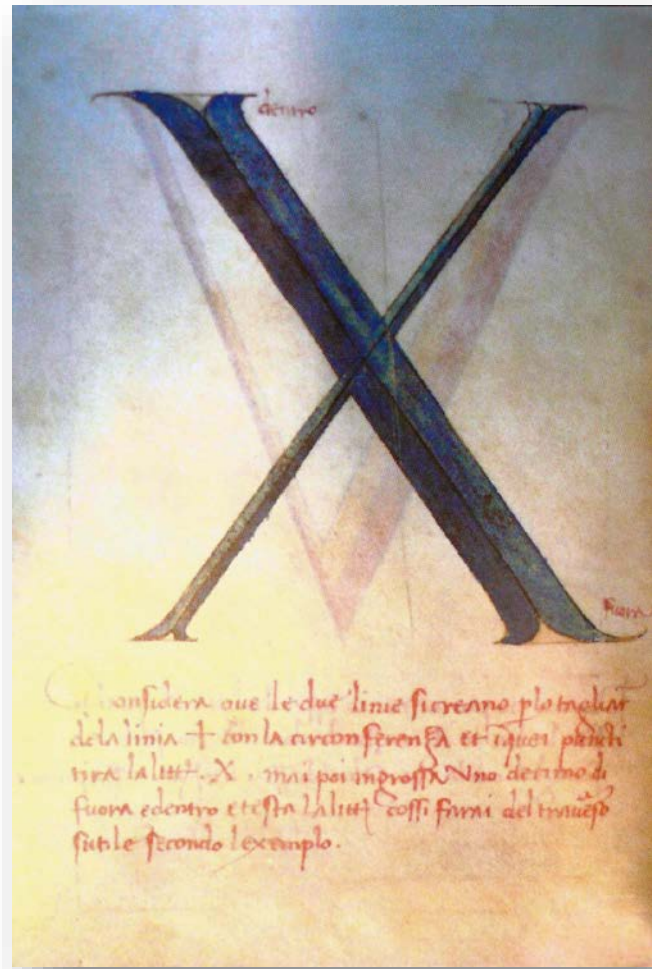 X
dentro
fuora
Considera ove le due linie si creano p lo tagliar
dela linia + con la circonferenza et i quei puncti
tira la litt. X. mai poi ingrossa Uno decimo di
fuora e dentro et esta la litt cossi farai del traverso
sutile secondo lexemplo.